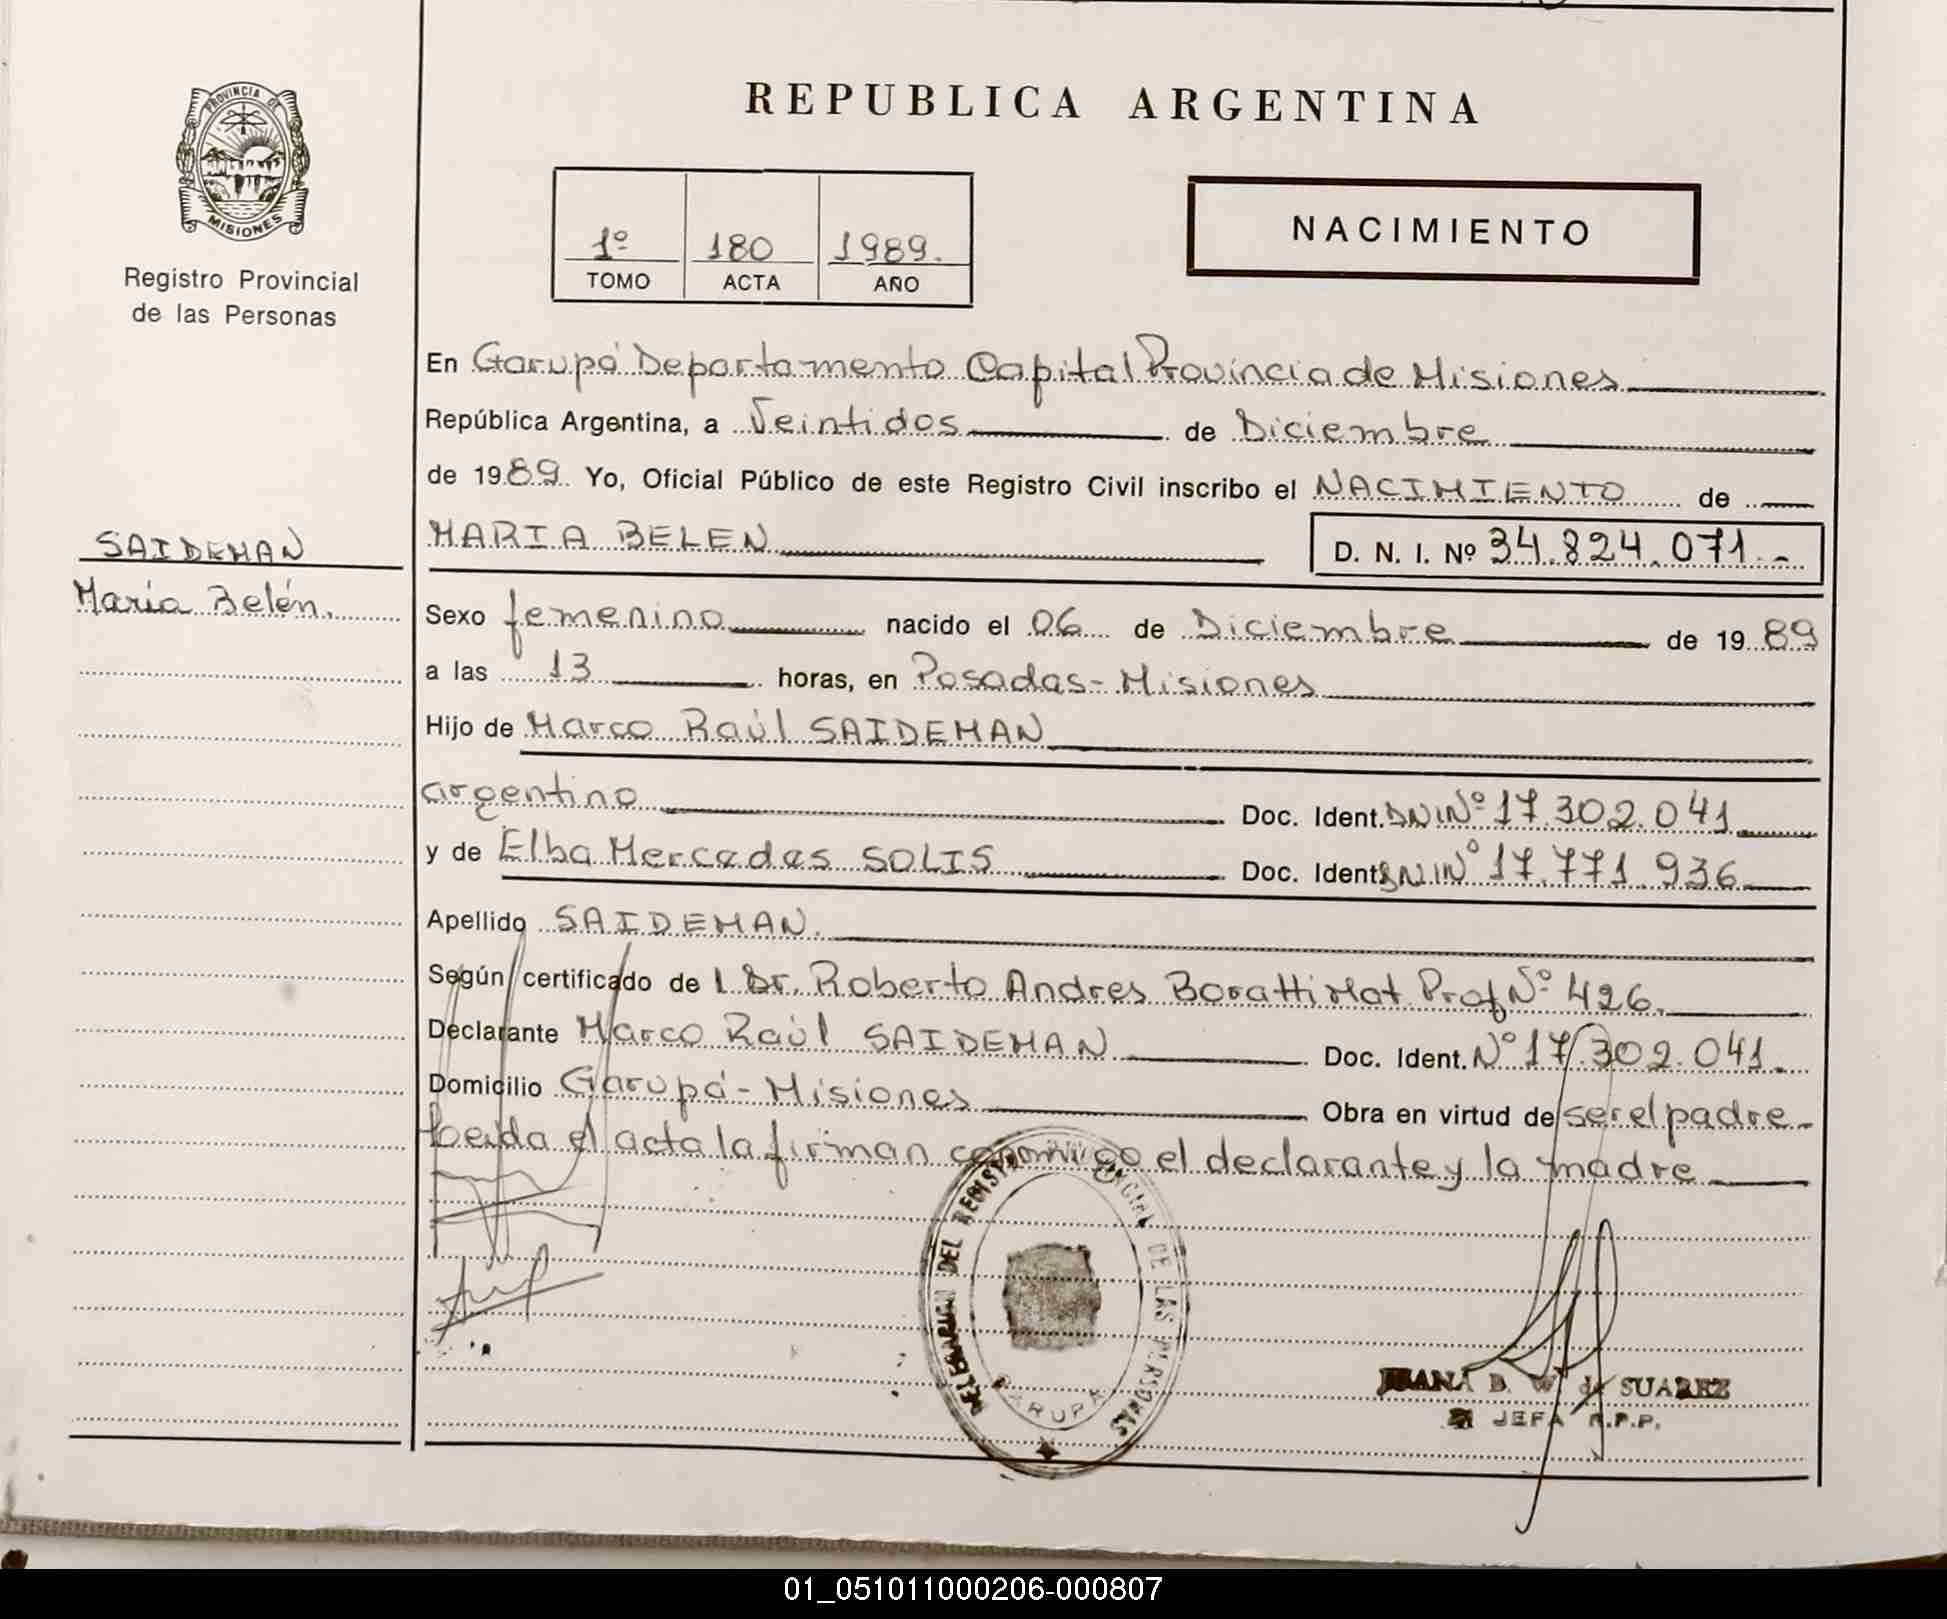 REPUBLICA ARGENTINA
PROVINCIA DE
MISIONES
Registro Provincial
de las Personas
1º 180 1989.
TOMO ACTA AÑO
NACIMIENTO
SAIDEMAN
María Belén.
En Garupá Departamento Capital Provincia de Misiones
República Argentina, a Veintidos de Diciembre
de 1989. Yo, Oficial Público de este Registro Civil inscribo el NACIMIENTO de
MARIA BELEN D. N. I. Nº 34.824.071.-
Sexo femenino nacido el 06 de Diciembre de 1989
a las 13 horas, en Posadas-Misiones
Hijo de Marco Raúl SAIDEMAN
argentino Doc. Ident. DNI Nº 17.302.041
y de Elba Mercedes SOLIS Doc. Ident. DNI Nº 17.771.936
Apellido SAIDEMAN.
Según certificado de l Dr. Roberto Andres Boratti Mat Prof Nº 426.
Declarante Marco Raúl SAIDEMAN Doc. Ident. Nº 17.302.041.
Domicilio Garupá-Misiones Obra en virtud de ser el padre.
Leida el acta la firman conmigo el declarante y la madre
DELEGACION DEL REGISTRO PROVINCIAL DE LAS PERSONAS
GARUPA
JUANA B. W. de SUAREZ
JEFA R.P.P.
01_051011000206-000807